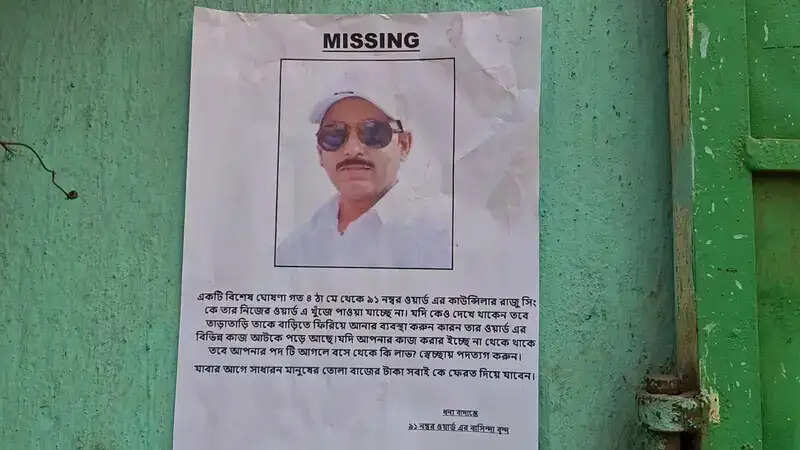 MISSING
একটি বিশেষ ঘোষণা গত ৪ ঠা মে থেকে ৯১ নম্বর ওয়ার্ড এর কাউন্সিলার রাজু সিং
কে তার নিজের ওয়ার্ড এ খুঁজে পাওয়া যাচ্ছে না। যদি কেও দেখে থাকেন তবে
তাড়াতাড়ি তাকে বাড়িতে ফিরিয়ে আনার ব্যবস্থা করুন কারন তার ওয়ার্ড এর
বিভিন্ন কাজ আটকে পড়ে আছে।যদি আপনার কাজ করার ইচ্ছে না থেকে থাকে
তবে আপনার পদ টি আগলে বসে থেকে কি লাভ? স্বেচ্ছায় পদত্যগ করুন।
যাবার আগে সাধারন মানুষের তোলা বাজের টাকা সবাই কে ফেরত দিয়ে যাবেন।
৯১ নম্বর ওয়ার্ড এর বাসিন্দা বৃন্দ